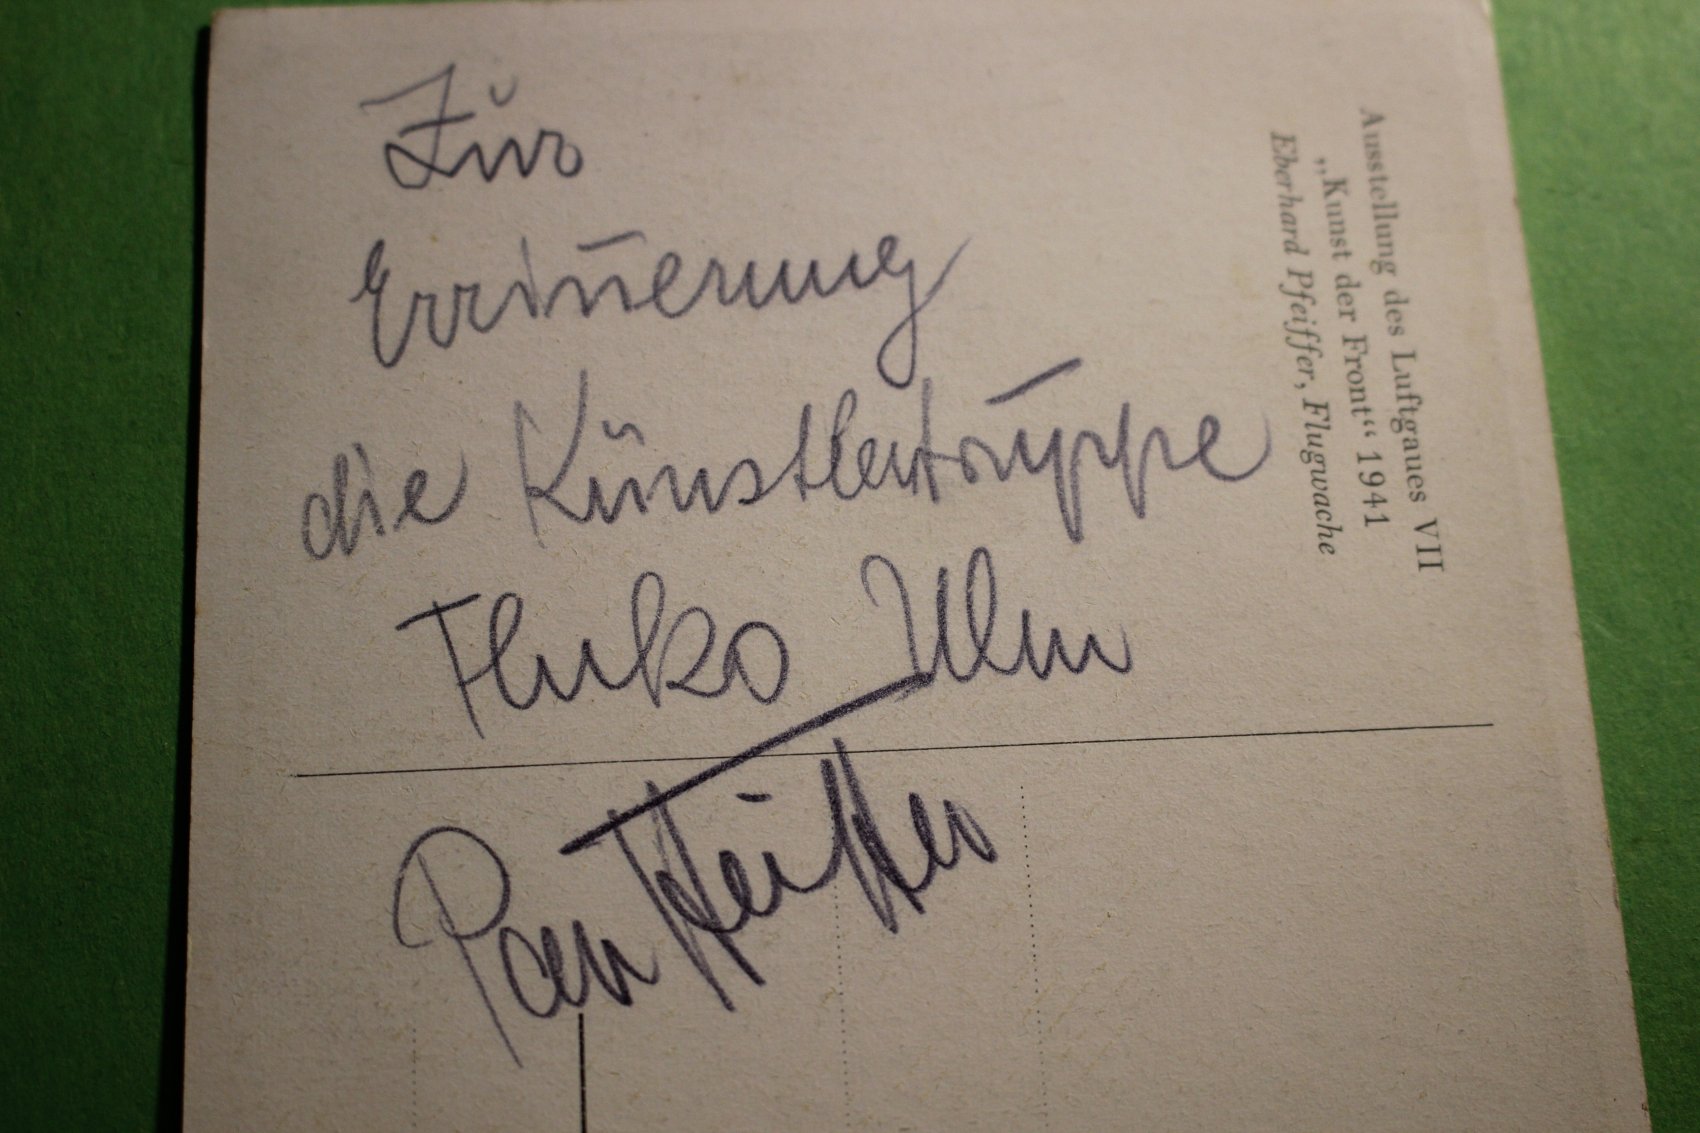 Zur
Errinnerung
die Künstlertruppe
Fluko Ulm
Pfeiffer
Ausstellung des Luftgaues VII
„Kunst der Front“ 1941
Eberhard Pfeiffer, Flugwache